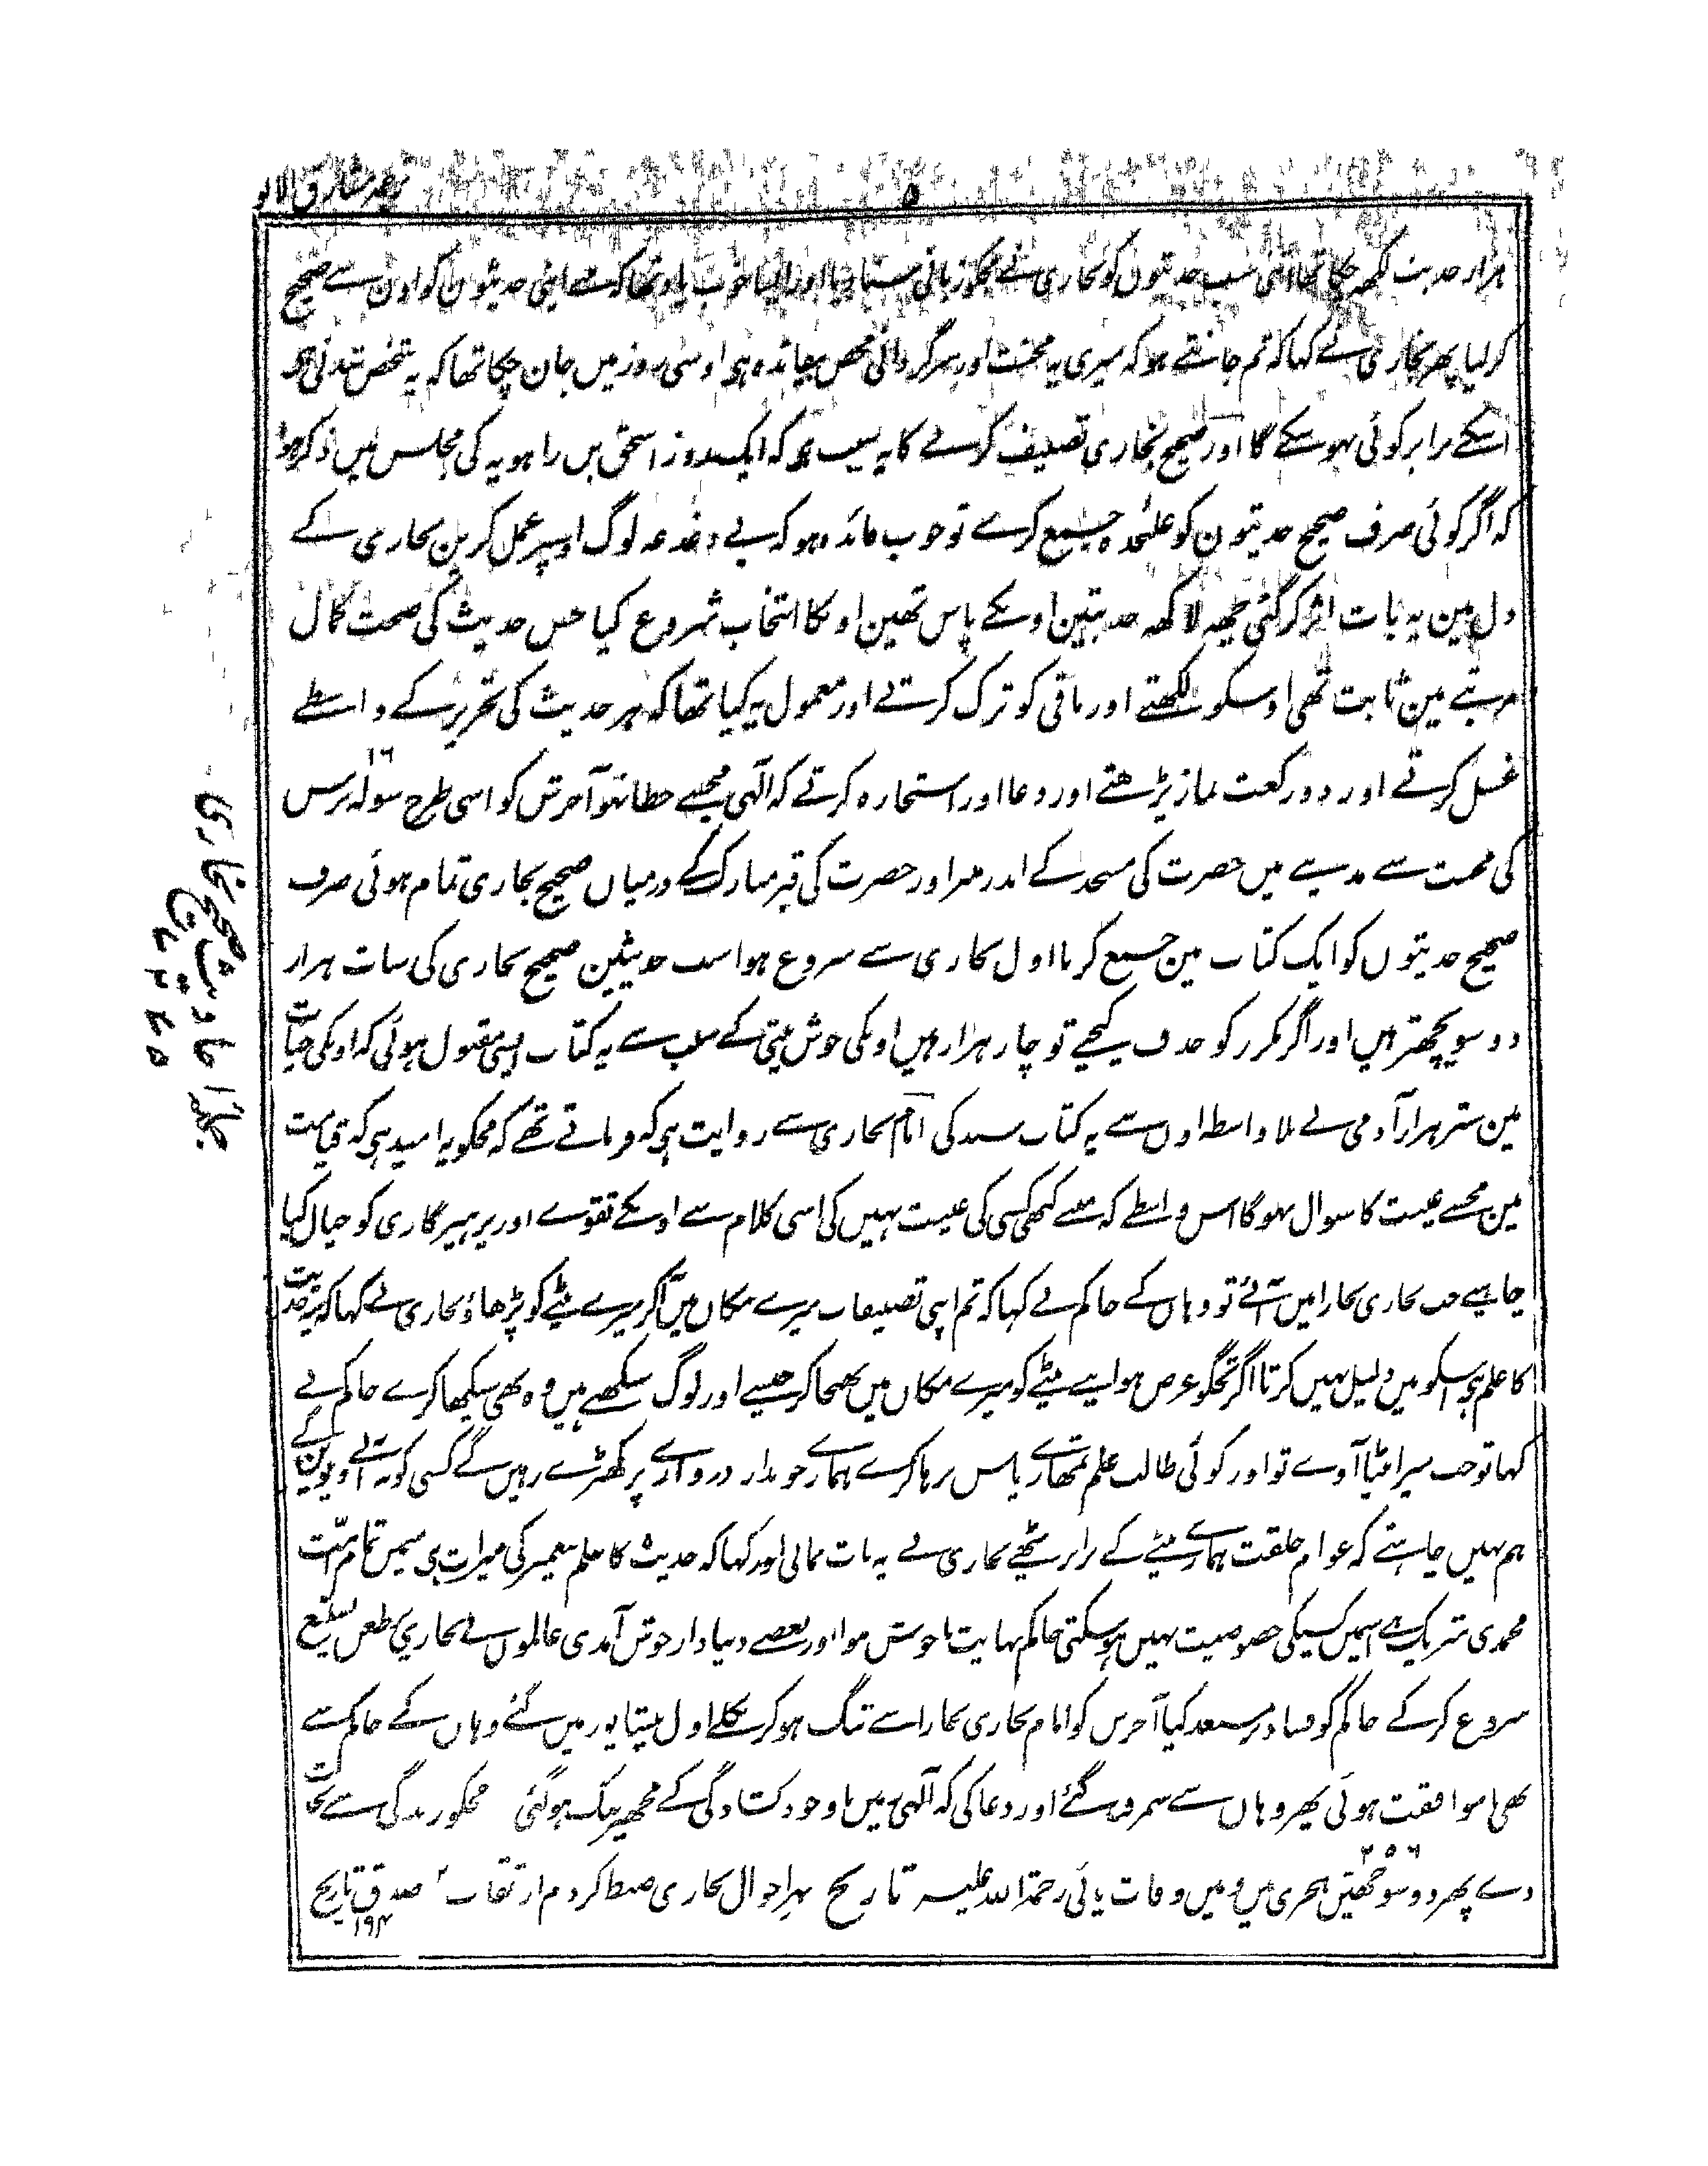 ترجمہ مشارق الانوار
۵
ہزار حدیث لکھ چکا تھا اتنی سب حدیثوں کو بخاری نے مجکو زبانی سنا دیا اور ایسا خوب یاد تھا کہ مینے اپنی حدیثون کو اون سے صحیح
کر لیا پھر بخاری نے کہا کہ تم جانتے ہو کہ میری یہ محنت اور سرگردانی محض بیفائدہ ہی اوسی روز میں جان چکا تھا کہ یہ شخص شدنی ہی
اسکے برابر کوئی نہو سکے گا اور صحیح بخاری تصنیف کرنے کا یہ سبب ہی کہ ایک روز اسحٰق بن راہویہ کی مجلس میں ذکر ہوا
کہ اگر کوئی صرف صحیح حدیثون کو علٰحدہ جمع کرے تو خوب فائدہ ہو کہ بے دغدغہ لوگ اوسپر عمل کرین بخاری کے
دل مین یہ بات اثر کر گئی چھہ لاکھہ حدیثین اوسکے پاس تھین اونکا انتخاب شروع کیا جس حدیث کی صحت کمال
مرتبے مین ثابت تھی اوسکو لکھتے اور باقی کو ترک کرتے اور معمول یہ کیا تھا کہ ہر حدیث کی تحریر کے واسطے
غسل کرتے اور دو رکعت نماز پڑھتے اور دعا اور استخارہ کرتے کہ الٰہی مجھسے خطا نہو آخرش کو اسی طرح سولہ ۱۶ برس
کی محنت سے مدینے میں حضرت کی مسجد کے اندر منبر اور حضرت کی قبر مبارک کے درمیاں صحیح بخاری تمام ہوئی صرف
صحیح حدیثوں کو ایک کتاب مین جمع کرنا اول بخاری سے شروع ہوا سب حدیثین صحیح بخاری کی سات ہزار
دو سو پچھتر ہیں اور اگر مکرر کو حذف کیجے تو چار ہزار ہیں اونکی خوش نیتی کے سبب سے یہ کتاب ایسی مقبول ہوئی کہ اونکی حیات
مین ستر ہزار آدمی نے بلا واسطہ اوں سے یہ کتاب سند کی امام بخاری سے روایت ہی کہ فرماتے تھے کہ مجکو یہ امید ہی کہ قیامت
مین مجسے غیبت کا سوال نہوگا اس واسطے کہ مینے کبھی کسی کی غیبت نہیں کی اسی کلام سے اونکے تقوے اور پرہیزگاری کو خیال کیا
چاہیے جب بخاری بخارا میں آئے تو وہاں کے حاکم نے کہا کہ تم اپنی تصنیفات میرے مکاں میں آکر میرے بیٹے کو پڑھاؤ بخاری نے کہا کہ یہ حدیث
کا علم ہی اسکو میں ذلیل نہیں کرتا اگر تجکو غرض ہو اپنے بیٹے کو میرے مکاں میں بھیجا کر جیسے اور لوگ سیکھتے ہیں وہ بھی سیکھا کرے حاکم نے
کہا تو جب میرا بیٹا آوے تو اور کوئی طالب علم تمھارے پاس نرہا کرے ہمارے چوبدار دروازے پر کھڑے رہیں گے کسی کو نہ آنے دیویں گے
ہم نہیں چاہتے کہ عوام خلقت ہمارے بیٹے کے برابر بیٹھے بخاری نے یہ بات نمانی اور کہا کہ حدیث کا علم پیغمبر کی میراث ہی اسمیں تمام امّت
محمدی شریک ہے اسمیں کسیکی خصوصیت نہیں ہو سکتی حاکم نہایت ناخوش ہوا اور بعضے دنیادار خوش آمدی عالموں نے بخاری پر طعن تشنیع
شروع کر کے حاکم کو فساد پر مستعد کیا آخرش کو امام بخاری بخارا سے تنگ ہو کر نکلے اول نیشاپور میں گئے وہاں کے حاکم سے
بھی ناموافقت ہوئی پھر وہاں سے سمرقند گئے اور دعا کی کہ الٰہی زمین باوجود کشادگی کے مجھپر تنگ ہو گئی مجکو زندگی سے نجات
دے پھر دو سو چھپن ۲۵۶ ہجری میں وفات پائی رحمۃ اللہ علیہ تاریخ بہر احوال بخاری ضبط کردم از ثقات صدق تاریخ
۱۹۴
عدد احادیث صحیح بخاری